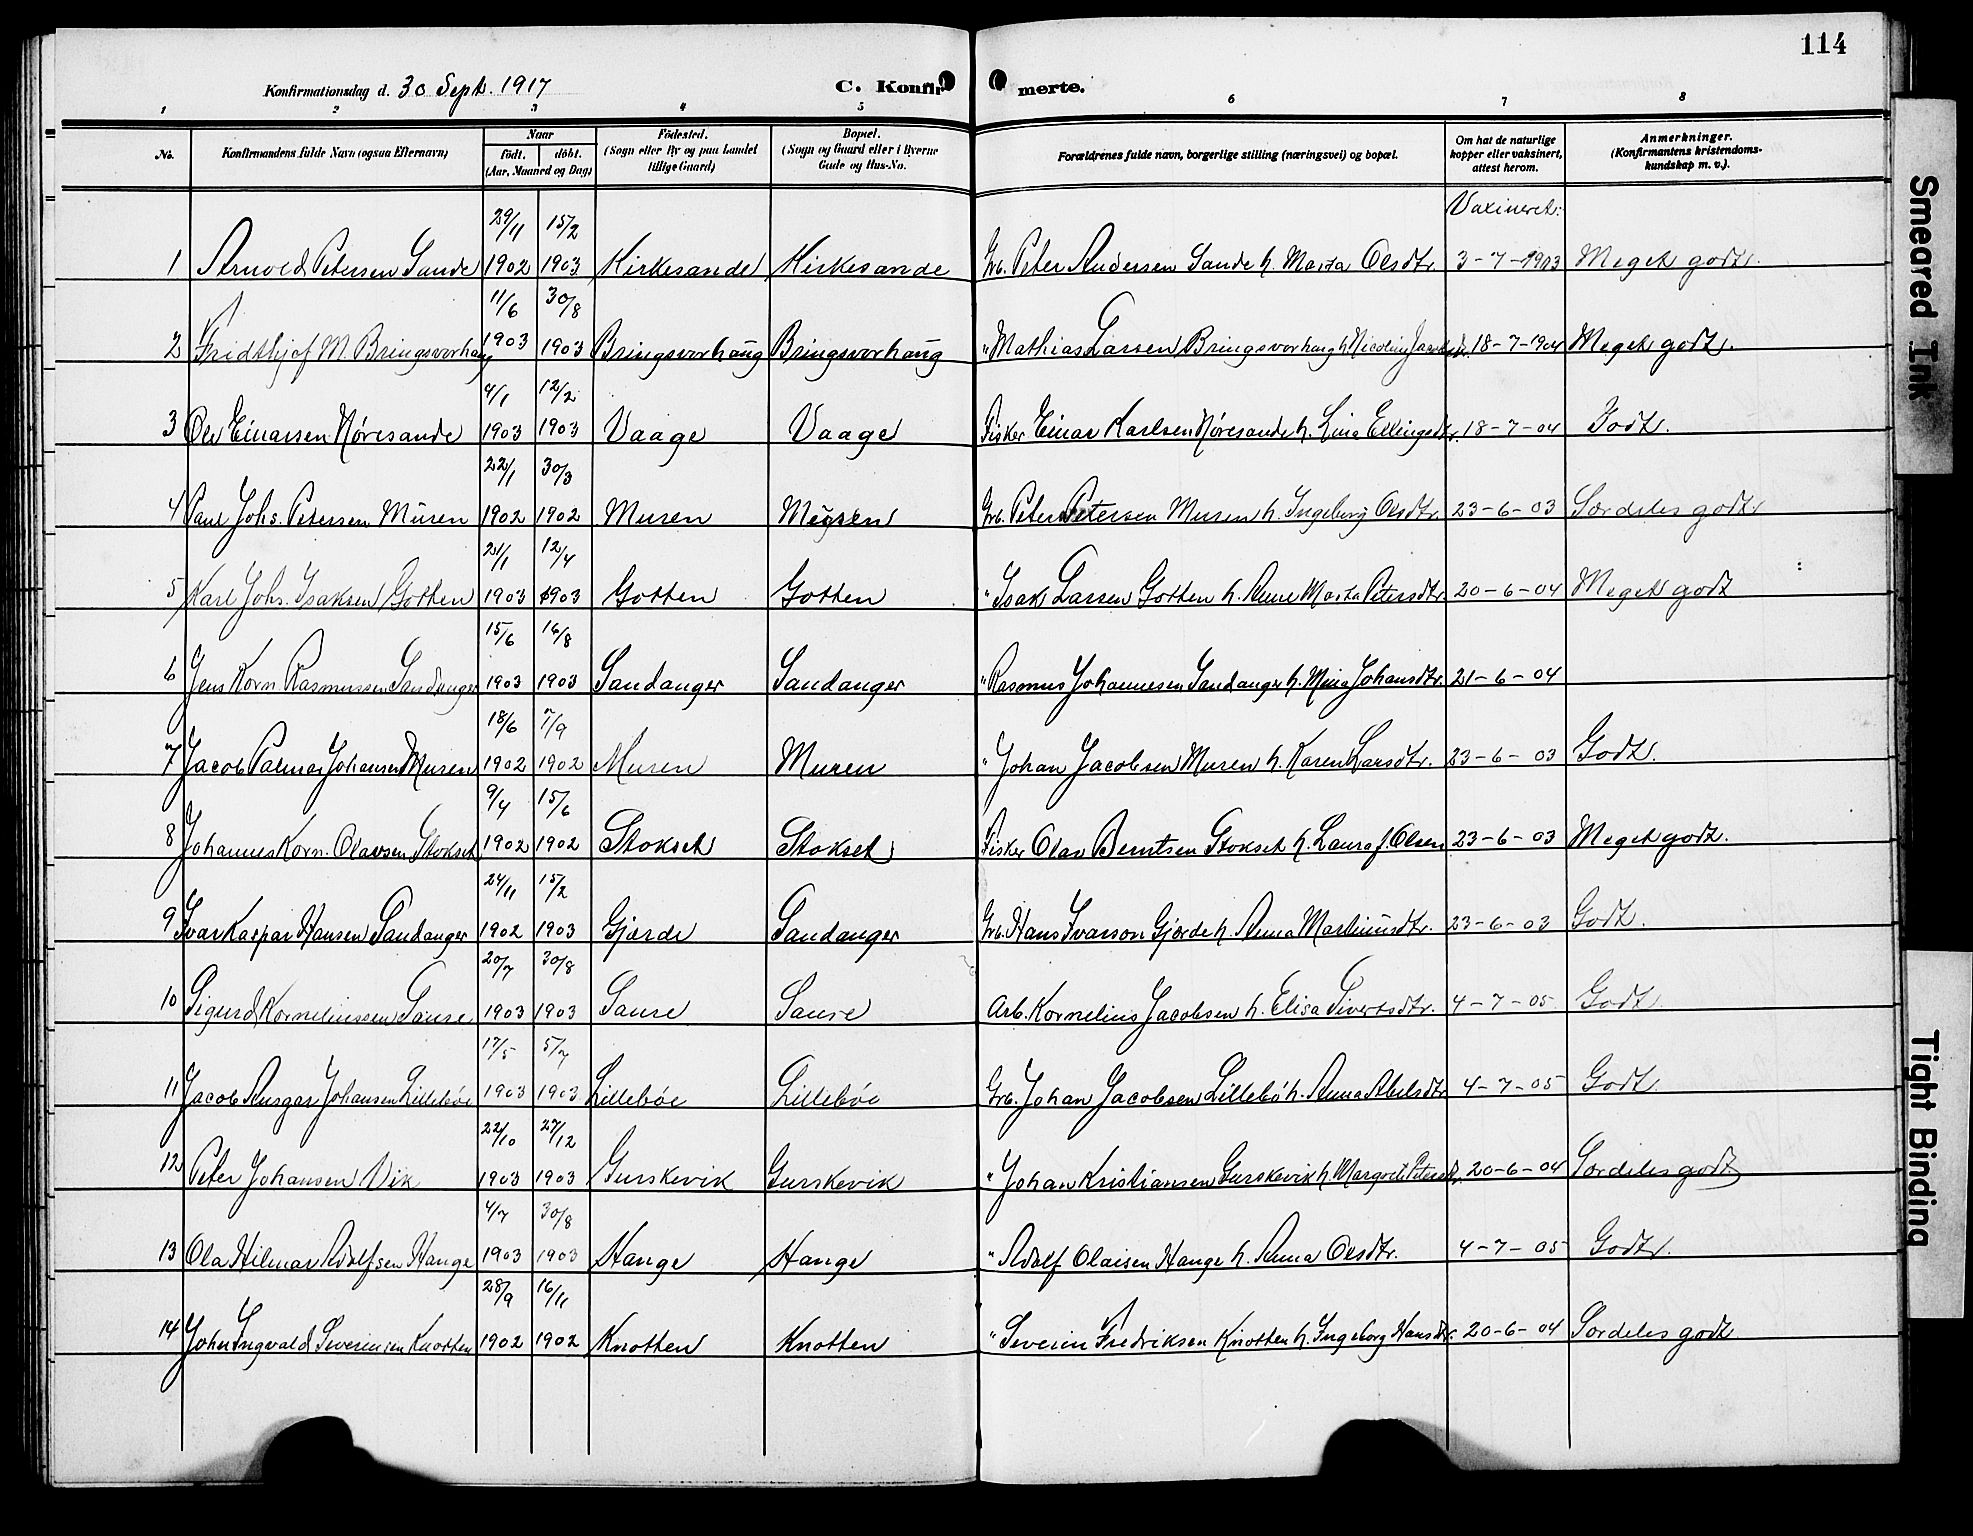 114
Konfirmationsdag d. 30 Sept. 1917 C. Konfir merte.
1 2 3 4 5 6 7 8
No. Konfirmandens fulde Navn (ogsaa Efternavn) Naar født. døbt. (Aar, Maaned og Dag) Fødested. (Sogn eller By og paa Landet tillige Gaard) Bopæl. (Sogn og Gaard eller i Byerne Gade og Hus-No. Forældrenes fulde navn, borgerlige stilling (næringsvei) og bopæl. Om hat de naturlige kopper eller vaksinert, attest herom. Anmerkninger. (Konfirmantens kristendoms-kundskap m. v.).
Vaxineret:
29/11 15/2
1 Arnold Petersen Sande 1902 1903 Kirkesande Kirkesande Grb. Peter Andersen Sande h. Marta Olsdtr. 3-7-1903 Meget godt.
11/6 30/8
2 Fridthjof M. Bringsvorhaug 1903 1903 Bringsvorhaug Bringsvorhaug " Mathias Larsen Bringsvorhaug h. Nicoline 18-7-1904 Meget godt.
4/1 12/2
3 Ole Einarsen Nøresande 1903 1903 Vaage Vaage Fisker Einar Karlsen Nøresande h. Lina Ellingsdtr. 18-7-04 Godt.
22/1 30/3
4 Paul Johs. Petersen Muren 1902 1902 Muren Muren Grb. Peter Petersen Muren h. Ingeborg Olsdtr. 23-6-03 Særdeles godt
21/1 12/4
5 Karl Johs. Isaksen Gotten 1903 1903 Gotten Gotten " Isak Larsen Gotten h. Anne Marta Petersdtr. 20-6-04 Meget godt
15/6 16/8
6 Jens Korn. Rasmussen Sandanger 1903 1903 Sandanger Sandanger " Rasmus Johannesen Sandanger h. Mina Johansdtr. 21-6-04
18/6 7/9
7 Jacob Palmar Johansen Muren 1902 1902 Muren Muren " Johan Jacobsen Muren h. Karen Larsdtr. 23-6-03 Godt.
9/4 15/6
8 Johannes Korn. Olavsen Stokset 1902 1902 Stokset Stokset Fisker Olav Berntsen Stokset h. Laura J. Olsen 23-6-03 Meget godt.
24/11 15/2
9 Ivar Kaspar Hansen Sandanger 1902 1903 Gjerde Sandanger Grb. Hans Ivarson Gjerde h. Anna Martinusdtr. 23-6-03 Godt.
20/7 30/8
10 Sigurd Korneliussen Saure 1903 1903 Saure Saure Arb. Kornelius Jacobsen h. Elisa Sivertsdtr. 4-7-05 Godt
17/5 5/7
11 Jacob Ansgar Johansen Lillebøe 1903 1903 Lillebøe Lillebøe Grb. Johan Jacobsen Lillebø h. Anna Abelsdtr 4-7-05 Godt
22/10 27/12
12 Peter Johansen Vik 1903 1903 Gurskevik Gurskevik " Johan Kristiansen Gurskevik h. Margrete Petersdtr. 20-6-04 Særdeles godt
4/7 30/8
13 Ola Hilmar Adolfsen Hauge 1903 1903 Hauge Hauge " Adolf Olaisen Hauge h. Anna Olsdtr. 4-7-05 Godt.
28/9 16/11
14 John Ingvald Severinsen Knotten 1902 1902 Knotten Knotten " Severin Fredriksen Knotten h. Ingeborg Hansdtr. 20-6-04 Særdeles godt
Smeared Ink
Tight Binding